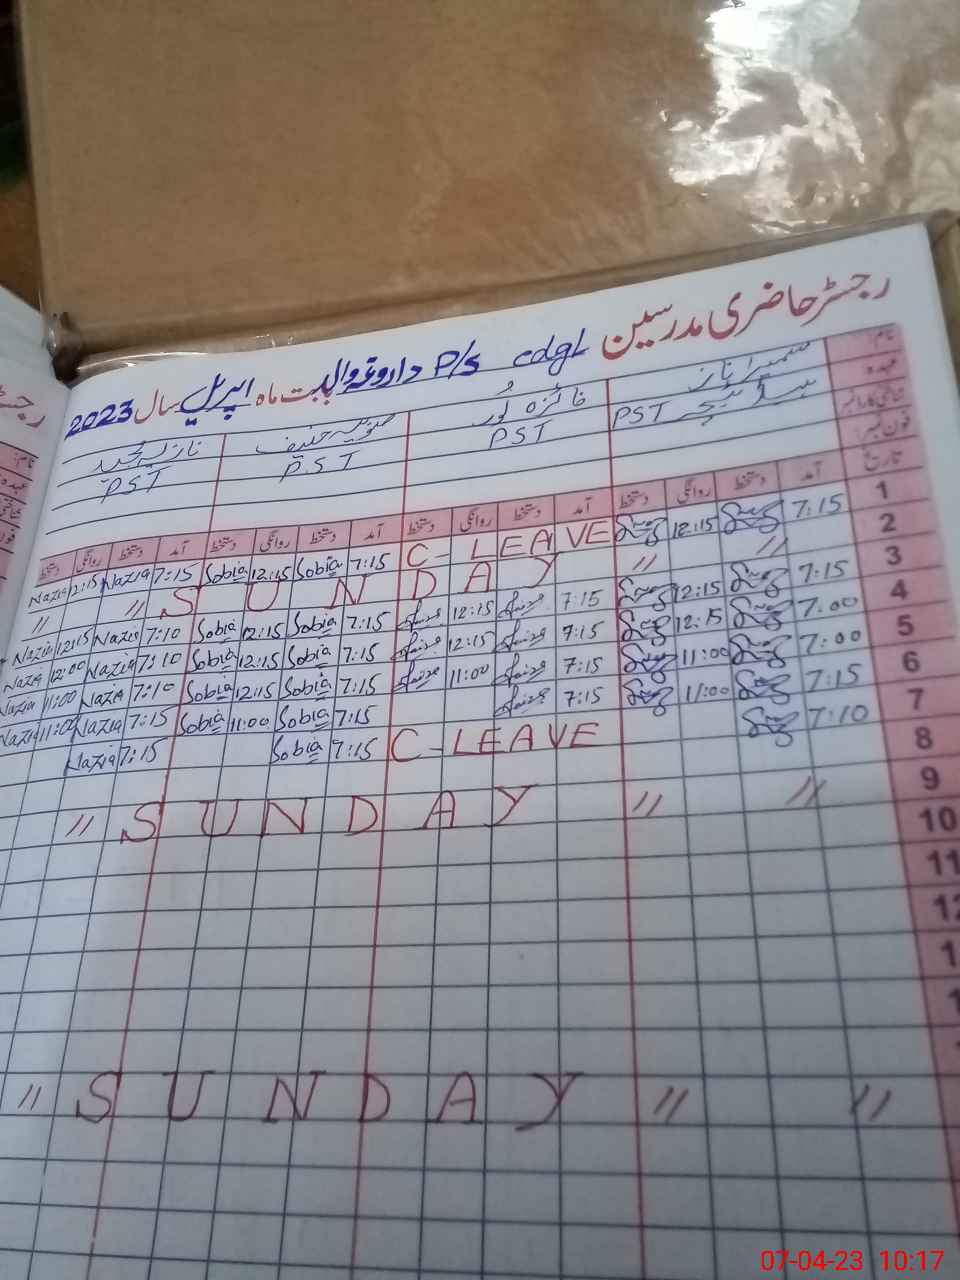 رجسٹر حاضری مدرسین cdgl P/S داروغہ والا بابت ماہ اپریل سال 2023
نام: سمیرا ناز فائزہ نور صوبیہ حنیف نازیہ مجید
عہدہ PST PST PST PST
فون نمبر:
تاریخ آمد دستخط روانگی دستخط آمد دستخط روانگی دستخط آمد دستخط روانگی دستخط آمد دستخط روانگی دستخط
1 7:15 12:15 C-LEAVE 7:15 Sobia 12:15 Sobia 7:15 Nazia 12:15 Nazia
2 " " SUNDAY " "
3 7:15 12:15 7:15 12:15 7:15 Sobia 12:15 Sobia 7:10 Nazia 12:15 Nazia
4 7:00 12:15 7:15 12:15 7:15 Sobia 12:15 Sobia 7:10 Nazia 12:00 Nazia
5 7:00 11:00 7:15 11:00 7:15 Sobia 12:15 Sobia 7:10 Nazia 11:00 Nazia
6 7:15 11:00 7:15 7:15 Sobia 11:00 Sobia 7:15 Nazia 11:00 Nazia
7 7:10 C-LEAVE 7:15 Sobia 7:15 Nazia
8
9 " " SUNDAY "
10
11
12
" " SUNDAY "
07-04-23 10:17